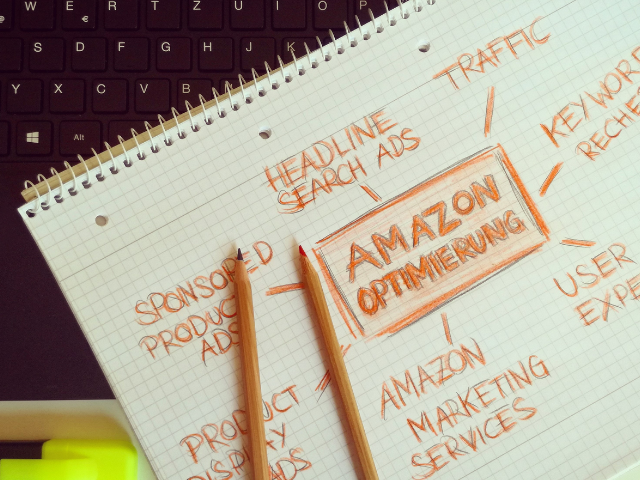 W E R T Z U I O P
€
S D F G H J K
Y X C V B
Alt
TRAFFIC
KEYWORD
RECHE
HEADLINE
SEARCH ADS
AMAZON
OPTIMIERUNG
SPONSORED
PRODUCT
ADS
USER
EXPE
AMAZON
MARKETING
SERVICES
PRODUCT
DISPLAY
ADS